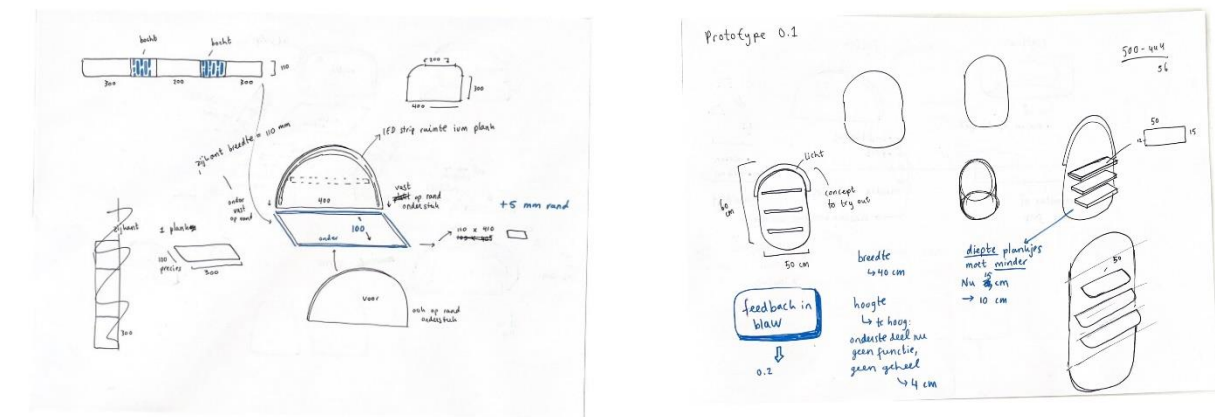 bocht
bocht
300
200
300
110
200
300
400
zijkant breedte = 110 mm
LED strip ruimte ivm plank
onder
vast
op rand
400
vast
op rand
onderstuk
+5 mm rand
100
onder
110 x 410
zijkant
1 plank
110
precies
300
300
voor
ook op rand
onderstuk
Prototype 0.1
500-444
56
licht
concept
to try out
60
cm
50 cm
50
15
breedte
↳ 40 cm
hoogte
↳ te hoog:
onderste deel nu
geen functie,
geen geheel
↳ 4 cm
feedback in
blauw
0.2
diepte plankjes
moet minder
Nu 15 cm
→ 10 cm
50